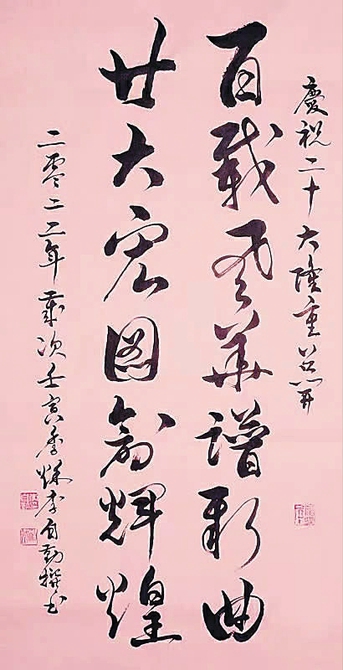 慶祝二十大隆重召開
百載風華譜新曲
廿大宏圖創輝煌
二零二二年歲次壬寅季秋李自勤撰书